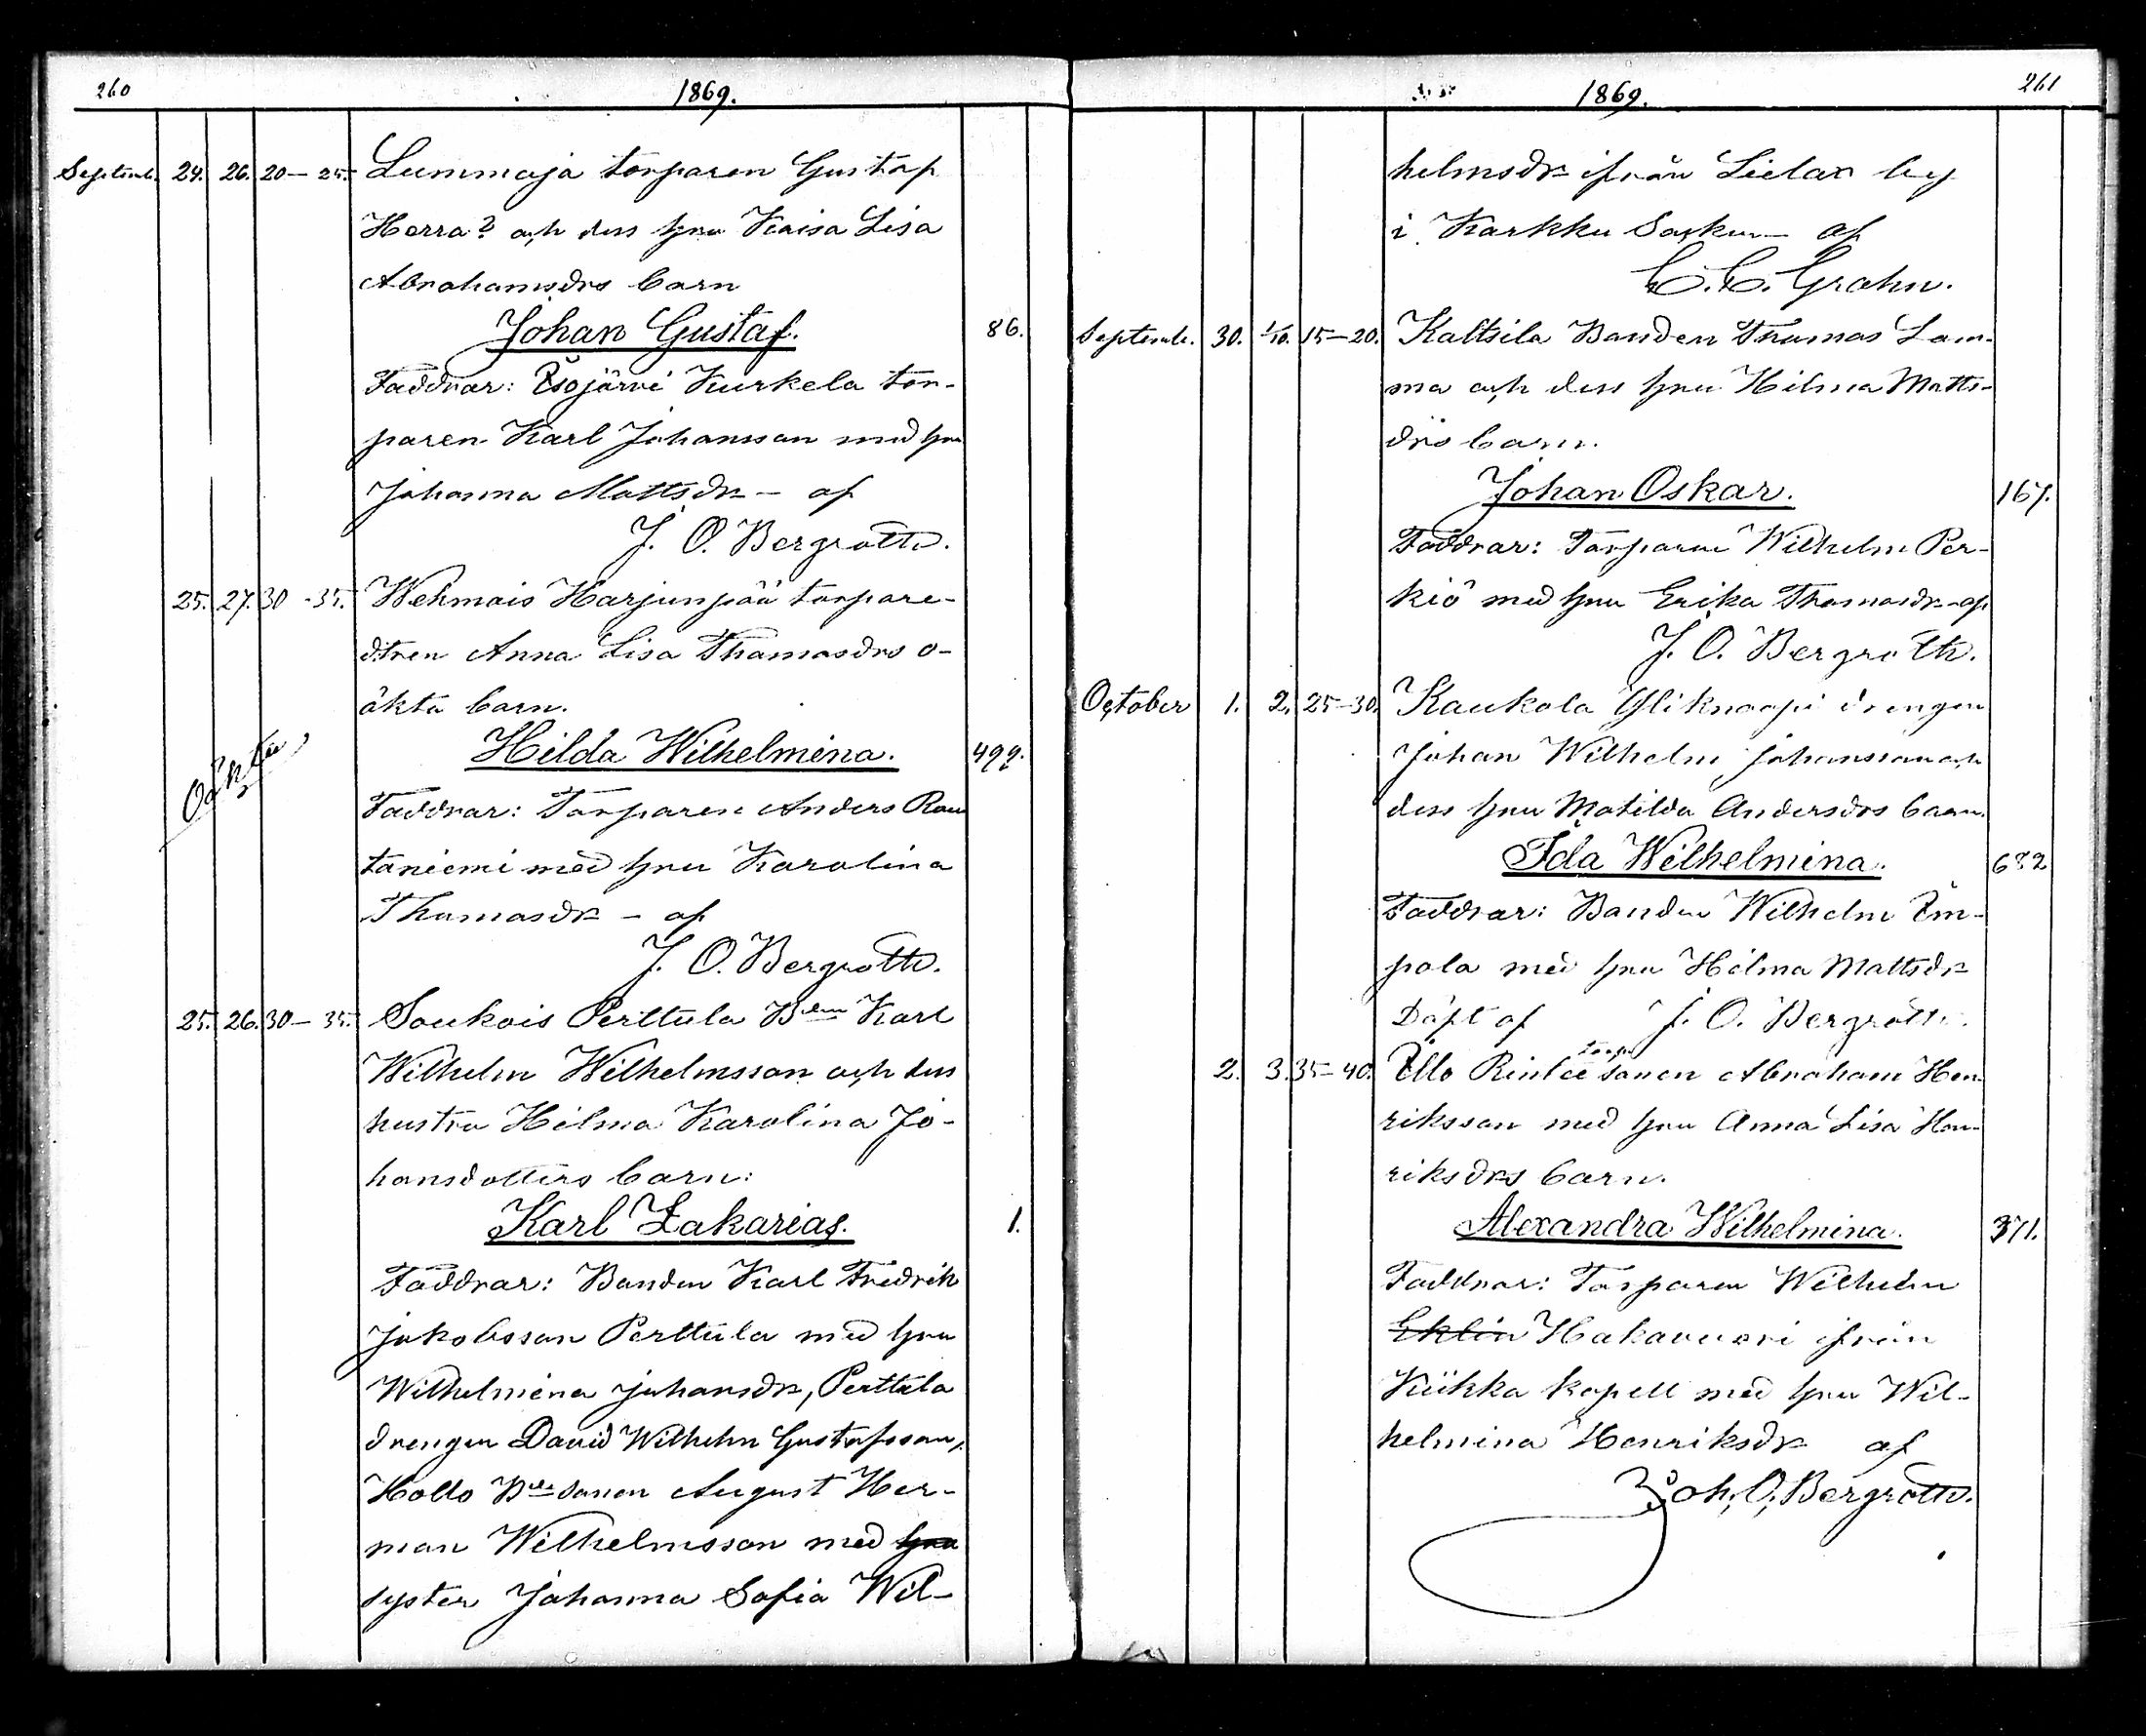 260
1869.
Septemb. 24. 26. 20–25. Lummaja torparen Gustaf
Herra? och dess hru Kaisa Lisa
Abrahamsdrs barn
Johan Gustaf. 86.
Faddrar: Isojärvi Kurkela tor-
paren Karl Johansson med hru
Johanna Mattsdr – af
J. O. Bergroth.
25. 27. 30-35. Wehmais Harjunpää torpare-
dtren Anna Lisa Thomasdrs o-
äkta barn.
Hilda Wilhelmina. 499.
Oäkta
Faddrar: Torparen Anders Rau
taniemi med hru Karolina
Thomasdr – af
J. O. Bergroth.
25. 26. 30–35. Soukois Perttula Karl
Wilhelm Wilhelmsson och dess
hustru Hilma Karolina Jo-
hansdotters barn:
Karl Zakarias. 1.
Faddrar: Bonden Karl Fredrik
Jakobsson Perttula med hru
Wilhelmina Johansdr, Perttula
drengen David Wilhelm Gustafsson,
Hollo Bdesonen August Her-
man Wilhelmsson med hru
syster Johanna Sofia Wil-
261
1869.
helmsdr ifrån Lielax by
i Karkku Socken – af
C. C. Grahn.
Septemb. 30. 1/10. 15–20. Kaltsila Bonden Thomas Lam-
ma och dess hru Hilma Matts-
drs barn.
Johan Oskar. 167.
Faddrar: Torparen Wilhelm Per-
kiö med hru Erika Thomasdr af
J. O. Bergroth.
October 1. 2. 25–30. Kaukola Yliknaapi drengen
Johan Wilhelm Johansson och
dess hru Matilda Andersdrs barn.
Ida Wilhelmina. 682
Faddrar: Bonden Wilhelm Im-
pola med hru Hilma Mattsdr
Döpt af J. O. Bergroth.
2. 3. 35–40. Illo torp sonen Abraham Hen-
riksson med hru Anna Lisa Hen-
riksdrs barn.
Alexandra Wilhelmina. 371.
Faddrar: Torparen Wilhelm
Eklin Hakavuori ifrån
Kiikka kapell med hru Wil-
helmina Henriksdr af
Joh. O. Bergroth.